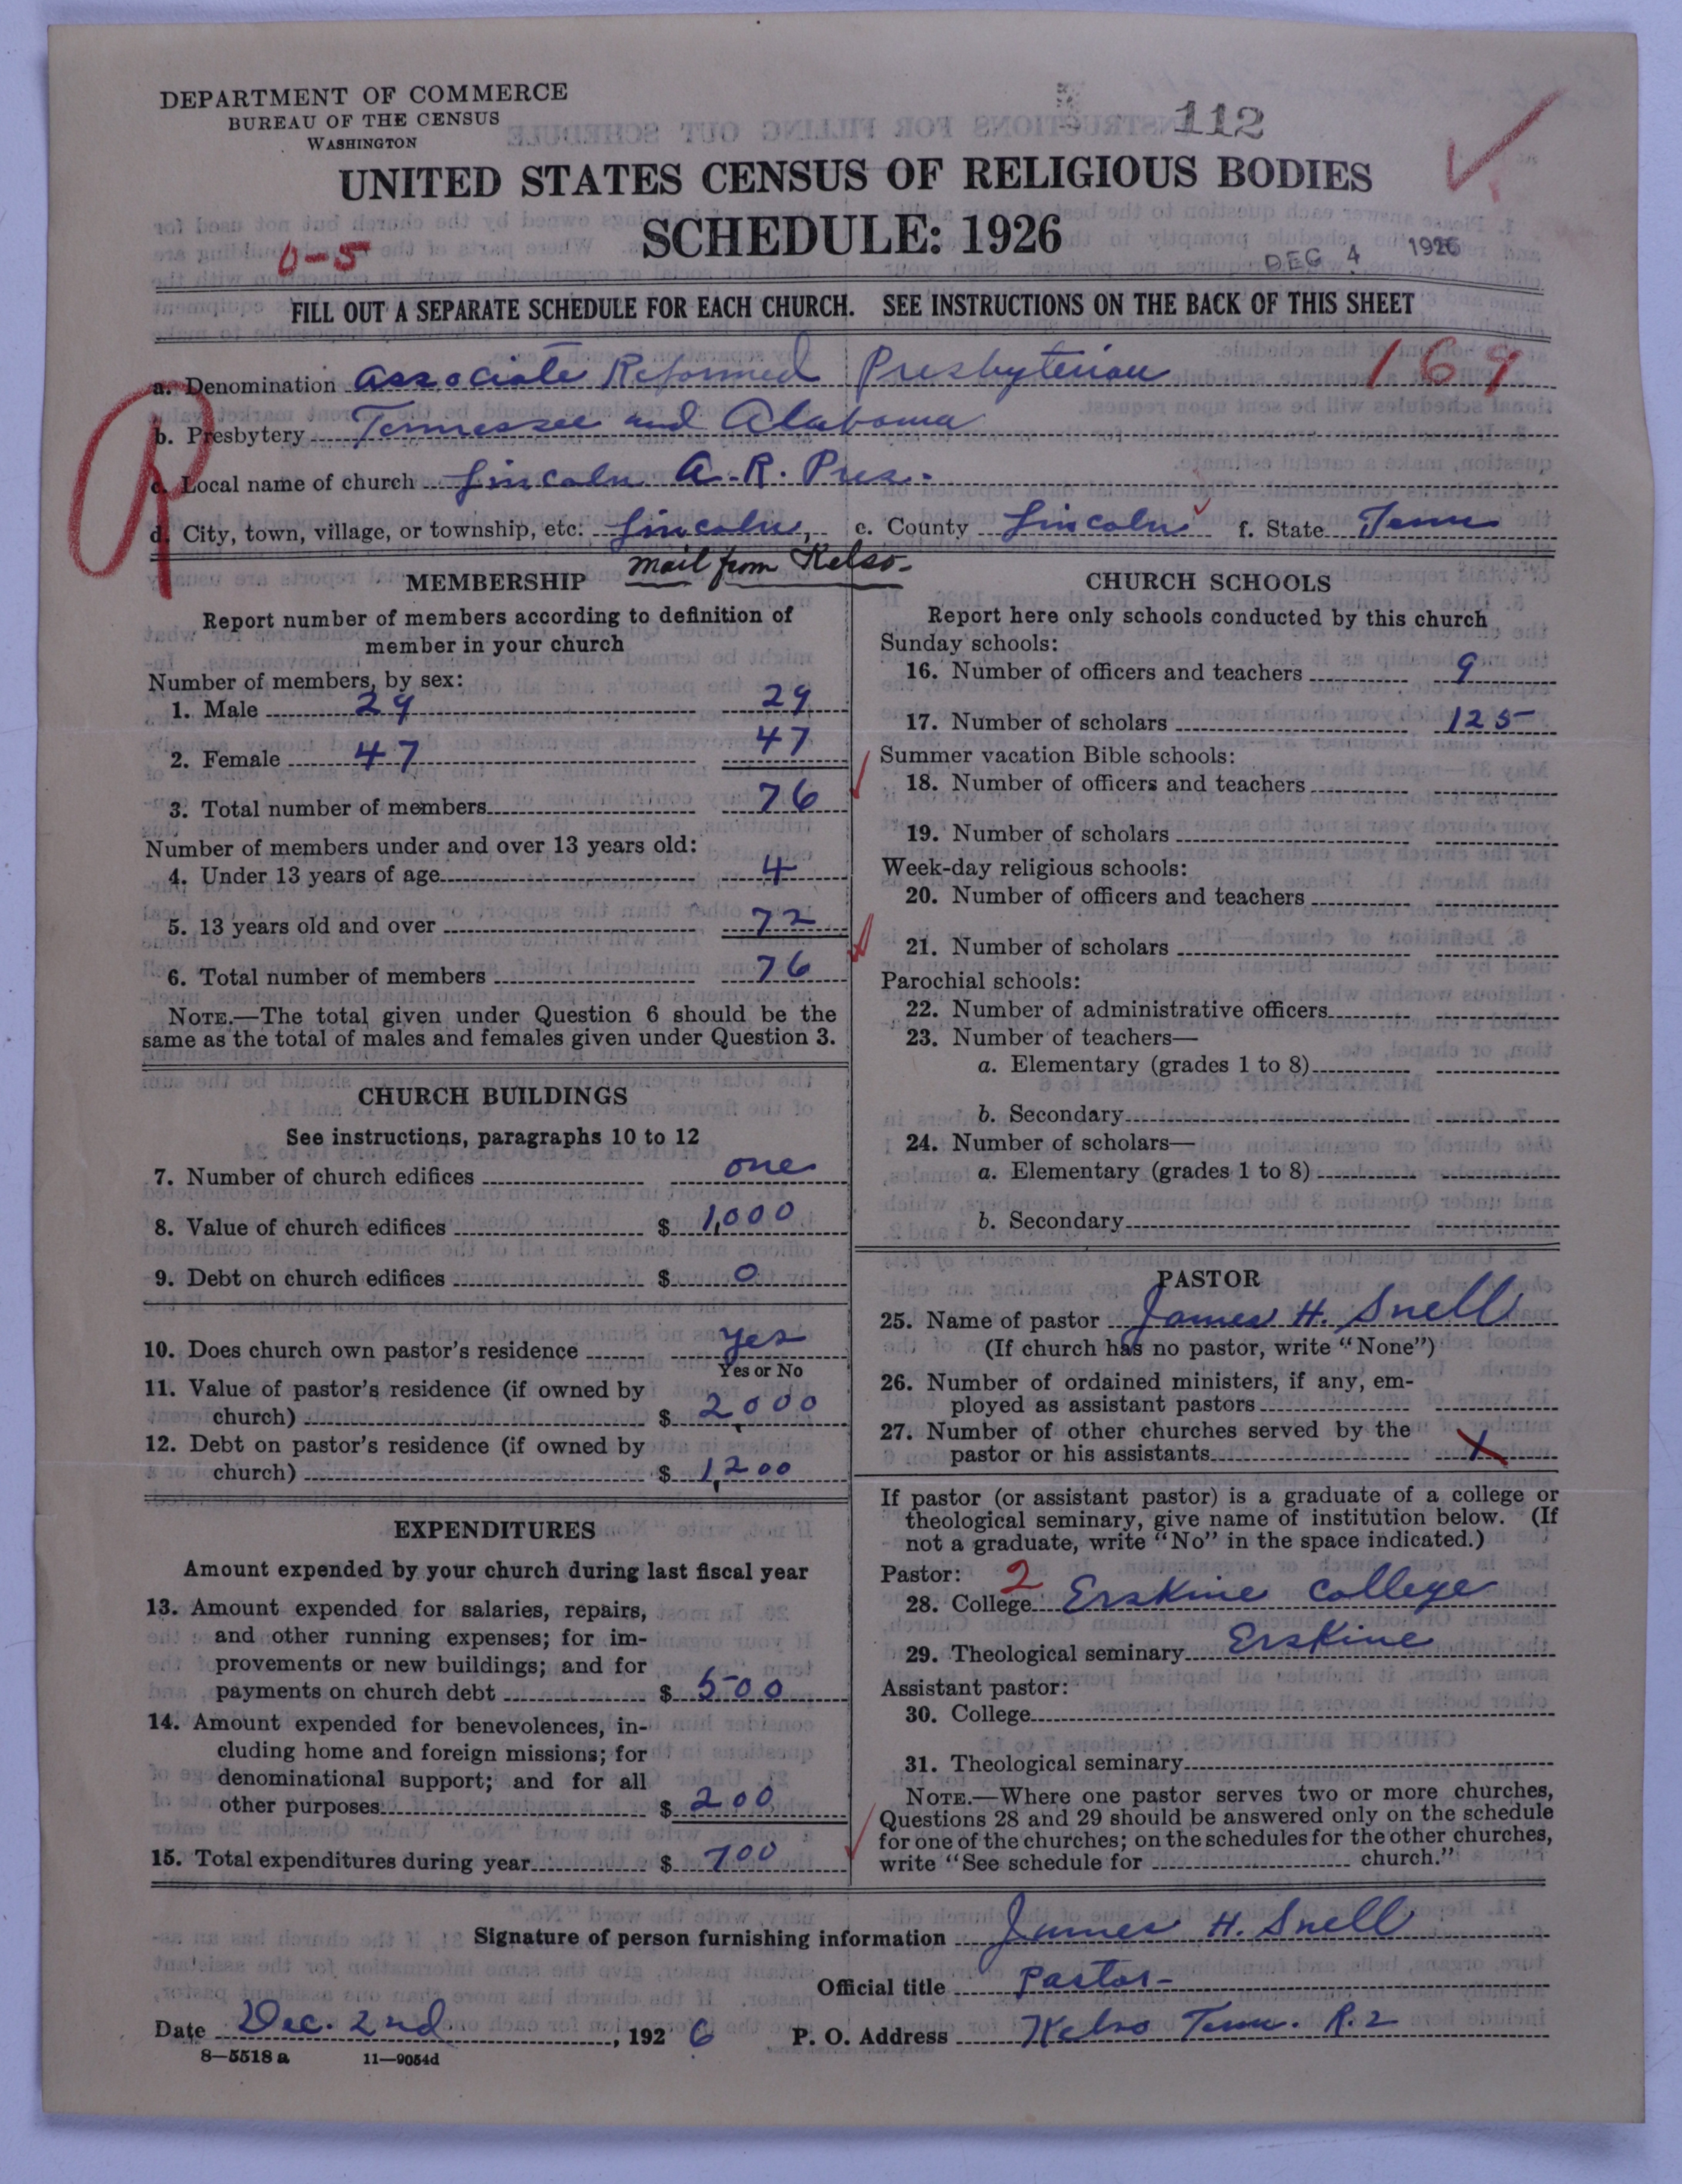 DEPARTMENT OF COMMERCE
BUREAU OF THE CENSUS
WASHINGTON
112
UNITED STATES CENSUS OF RELIGIOUS BODIES
SCHEDULE: 1926
0-5
DEC 4 1926
FILL OUT A SEPARATE SCHEDULE FOR EACH CHURCH. SEE INSTRUCTIONS ON THE BACK OF THIS SHEET
a. Denomination Associate Reformed Presbyterian 169
b. Presbytery Tennessee and Alabama
c. Local name of church Lincoln A.R. Pres.
d. City, town, village, or township, etc. Lincoln, e. County Lincoln f. State Tenn
mail from Kelso-
R
MEMBERSHIP
Report number of members according to definition of
member in your church
Number of members, by sex:
1. Male 29 29
2. Female 47 47
3. Total number of members 76
Number of members under and over 13 years old:
4. Under 13 years of age 4
5. 13 years old and over 72
6. Total number of members 76
NOTE.—The total given under Question 6 should be the
same as the total of males and females given under Question 3.
CHURCH BUILDINGS
See instructions, paragraphs 10 to 12
7. Number of church edifices one
8. Value of church edifices $ 1,000
9. Debt on church edifices $ 0
10. Does church own pastor's residence yes
Yes or No
11. Value of pastor's residence (if owned by
church) $ 2,000
12. Debt on pastor's residence (if owned by
church) $ 1,200
EXPENDITURES
Amount expended by your church during last fiscal year
13. Amount expended for salaries, repairs,
and other running expenses; for im-
provements or new buildings; and for
payments on church debt $ 500
14. Amount expended for benevolences, in-
cluding home and foreign missions; for
denominational support; and for all
other purposes $ 200
15. Total expenditures during year $ 700
CHURCH SCHOOLS
Report here only schools conducted by this church
Sunday schools:
16. Number of officers and teachers 9
17. Number of scholars 125
Summer vacation Bible schools:
18. Number of officers and teachers
19. Number of scholars
Week-day religious schools:
20. Number of officers and teachers
21. Number of scholars
Parochial schools:
22. Number of administrative officers
23. Number of teachers—
a. Elementary (grades 1 to 8)
b. Secondary
24. Number of scholars—
a. Elementary (grades 1 to 8)
b. Secondary
PASTOR
25. Name of pastor James H. Snell
(If church has no pastor, write "None")
26. Number of ordained ministers, if any, em-
ployed as assistant pastors
27. Number of other churches served by the
pastor or his assistants 1
If pastor (or assistant pastor) is a graduate of a college or
theological seminary, give name of institution below. (If
not a graduate, write "No" in the space indicated.)
Pastor: 2
28. College Erskine College
29. Theological seminary Erskine
Assistant pastor:
30. College
31. Theological seminary
NOTE.—Where one pastor serves two or more churches,
Questions 28 and 29 should be answered only on the schedule
for one of the churches; on the schedules for the other churches,
write "See schedule for church."
Signature of person furnishing information James H. Snell
Official title Pastor-
Date Dec. 2nd, 1926 P. O. Address Kelso Tenn. R.2
8—5518 a 11—9054d